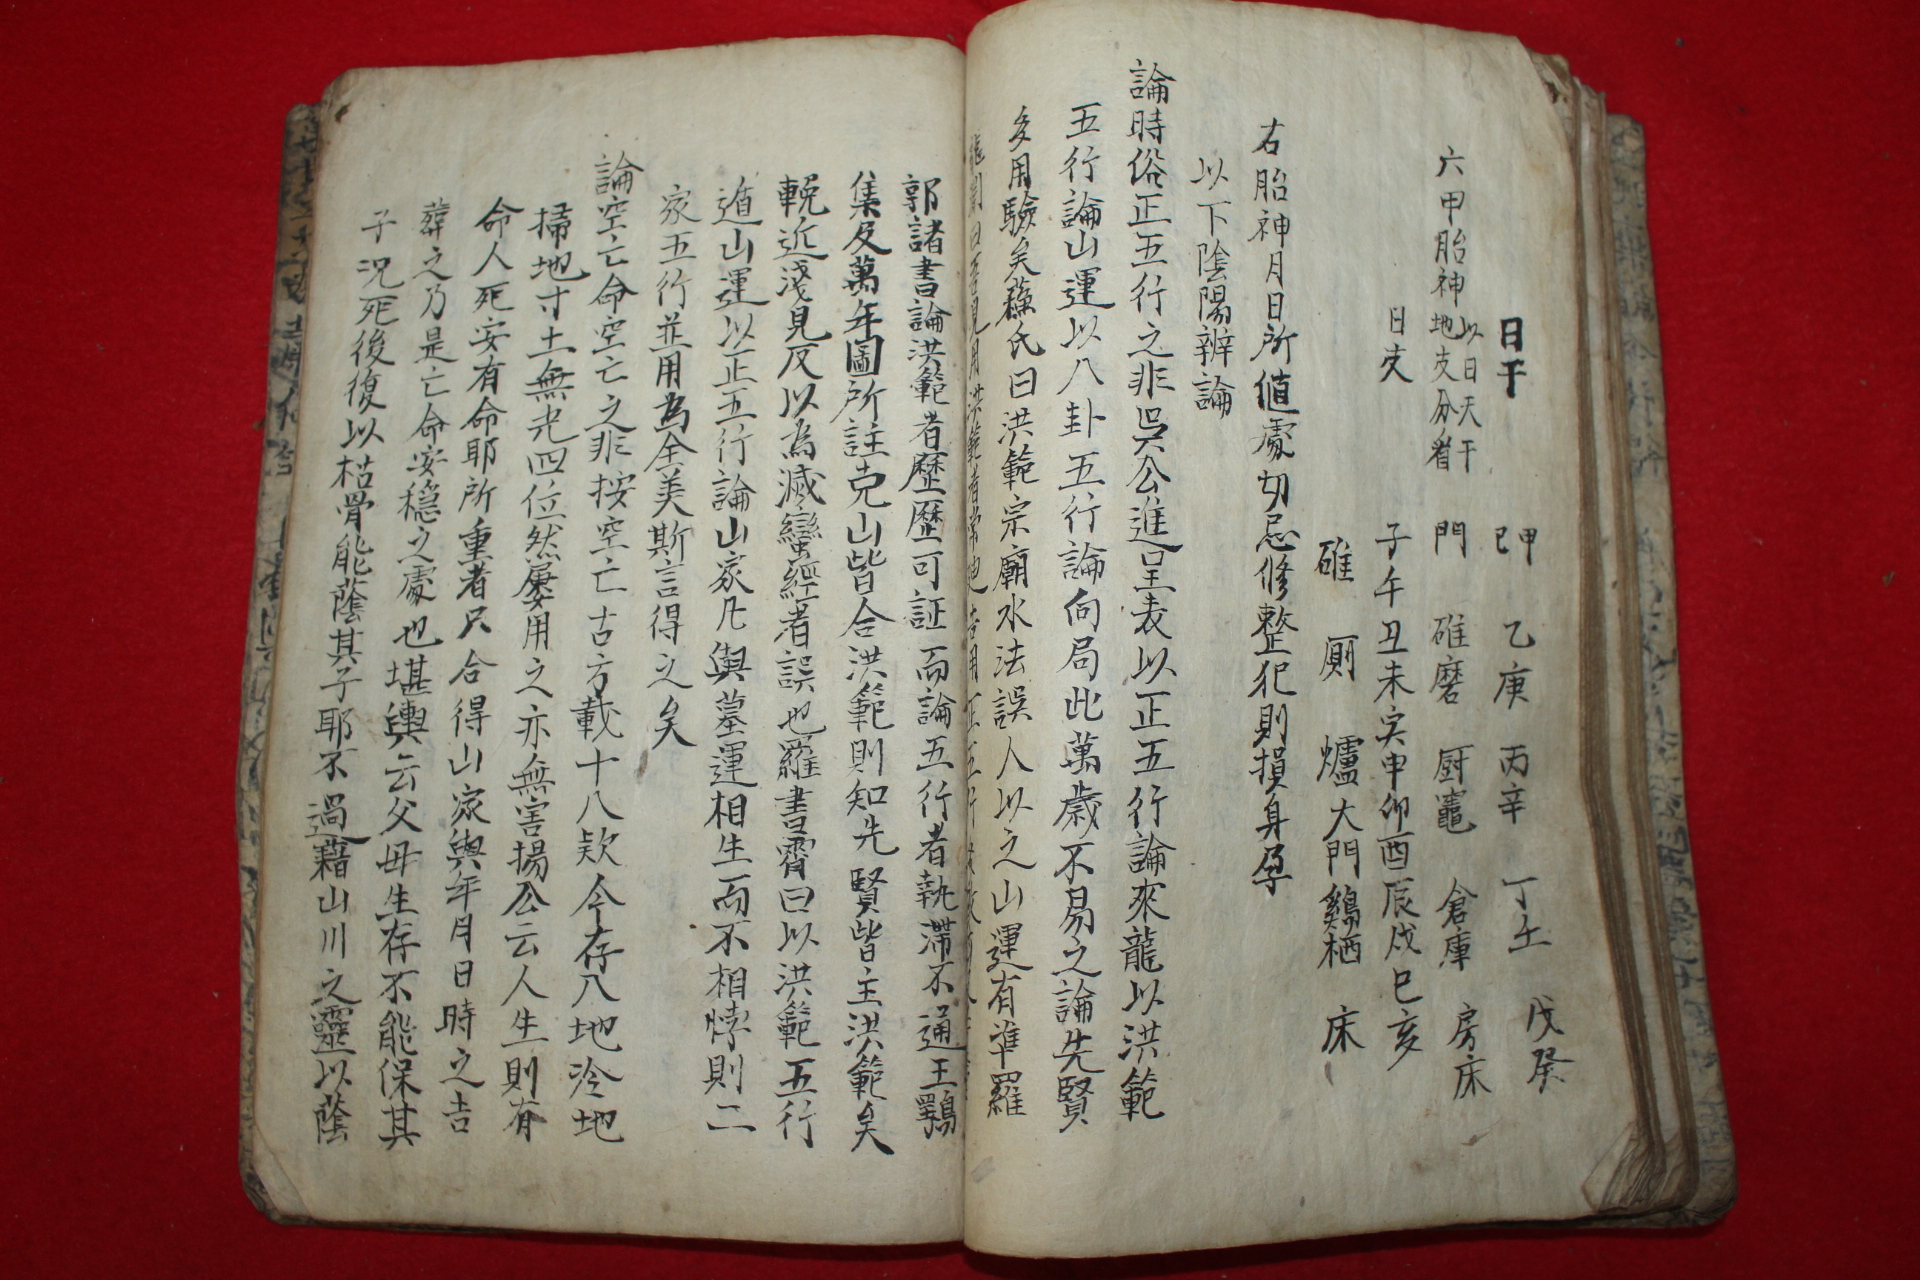 日干 甲己 乙庚 丙辛 丁壬 戊癸
六甲胎神 以日天干地支分看 門 碓磨 厨竈 倉庫 房床
日支 子午 丑未 寅申 卯酉 辰戌 巳亥
碓 厠 爐 大門 鷄栖 床
右胎神月日所値處切忌修整犯則損身孕
以下陰陽辨論
論時俗正五行之非吳公進呈表以正五行論來龍以洪範
五行論山運以八卦五行論向局此萬歲不易之論先賢
多用驗矣蘓氏曰洪範宗廟水法誤人以之山運有準羅
郭諸書論洪範者歷歷可証而論五行者執滯不通王鶚
集及萬年圖所註克山皆合洪範則知先賢皆主洪範矣
輓近淺見反以為滅蠻經者誤也羅書霽曰以洪範五行
遁山運以正五行論山家凡與墓運相生而不相悖則二
家五行並用為全美斯言得之矣
論空亡命空亡之非按空亡古方載十八欵今存八地冷地
掃地寸土無光四位然屢用之亦無害揚公云人生則有
命人死安有命耶所重者只合得山家與年月日時之吉
葬之乃是亡命安穩之處也堪輿云父母生存不能保其
子况死後復以枯骨能蔭其子耶不過藉山川之靈以蔭